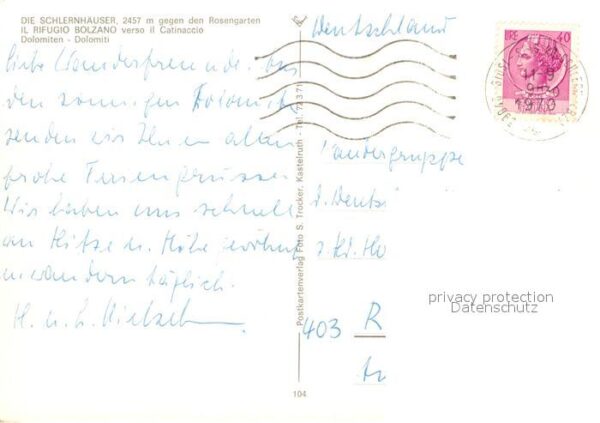 DIE SCHLERNHÄUSER, 2457 m gegen den Rosengarten
IL RIFUGIO BOLZANO verso il Catinaccio
Dolomiten - Dolomiti
Liebe Wanderfreunde. Aus
den sonnigen Dolomiten
senden wir Ihnen allen
frohe Feriengrüsse.
Wir haben uns schnell
an Hitze u. Höhe gewöhnt
u. wandern täglich.
H. u. L.
Postkartenverlag Foto S. Trocker, Kastelruth - Tel. 72371
104
Deutschland
LIRE 40
1970
Wandergruppe
d. Deuts
z. Hd.
403 R
privacy protection
Datenschutz